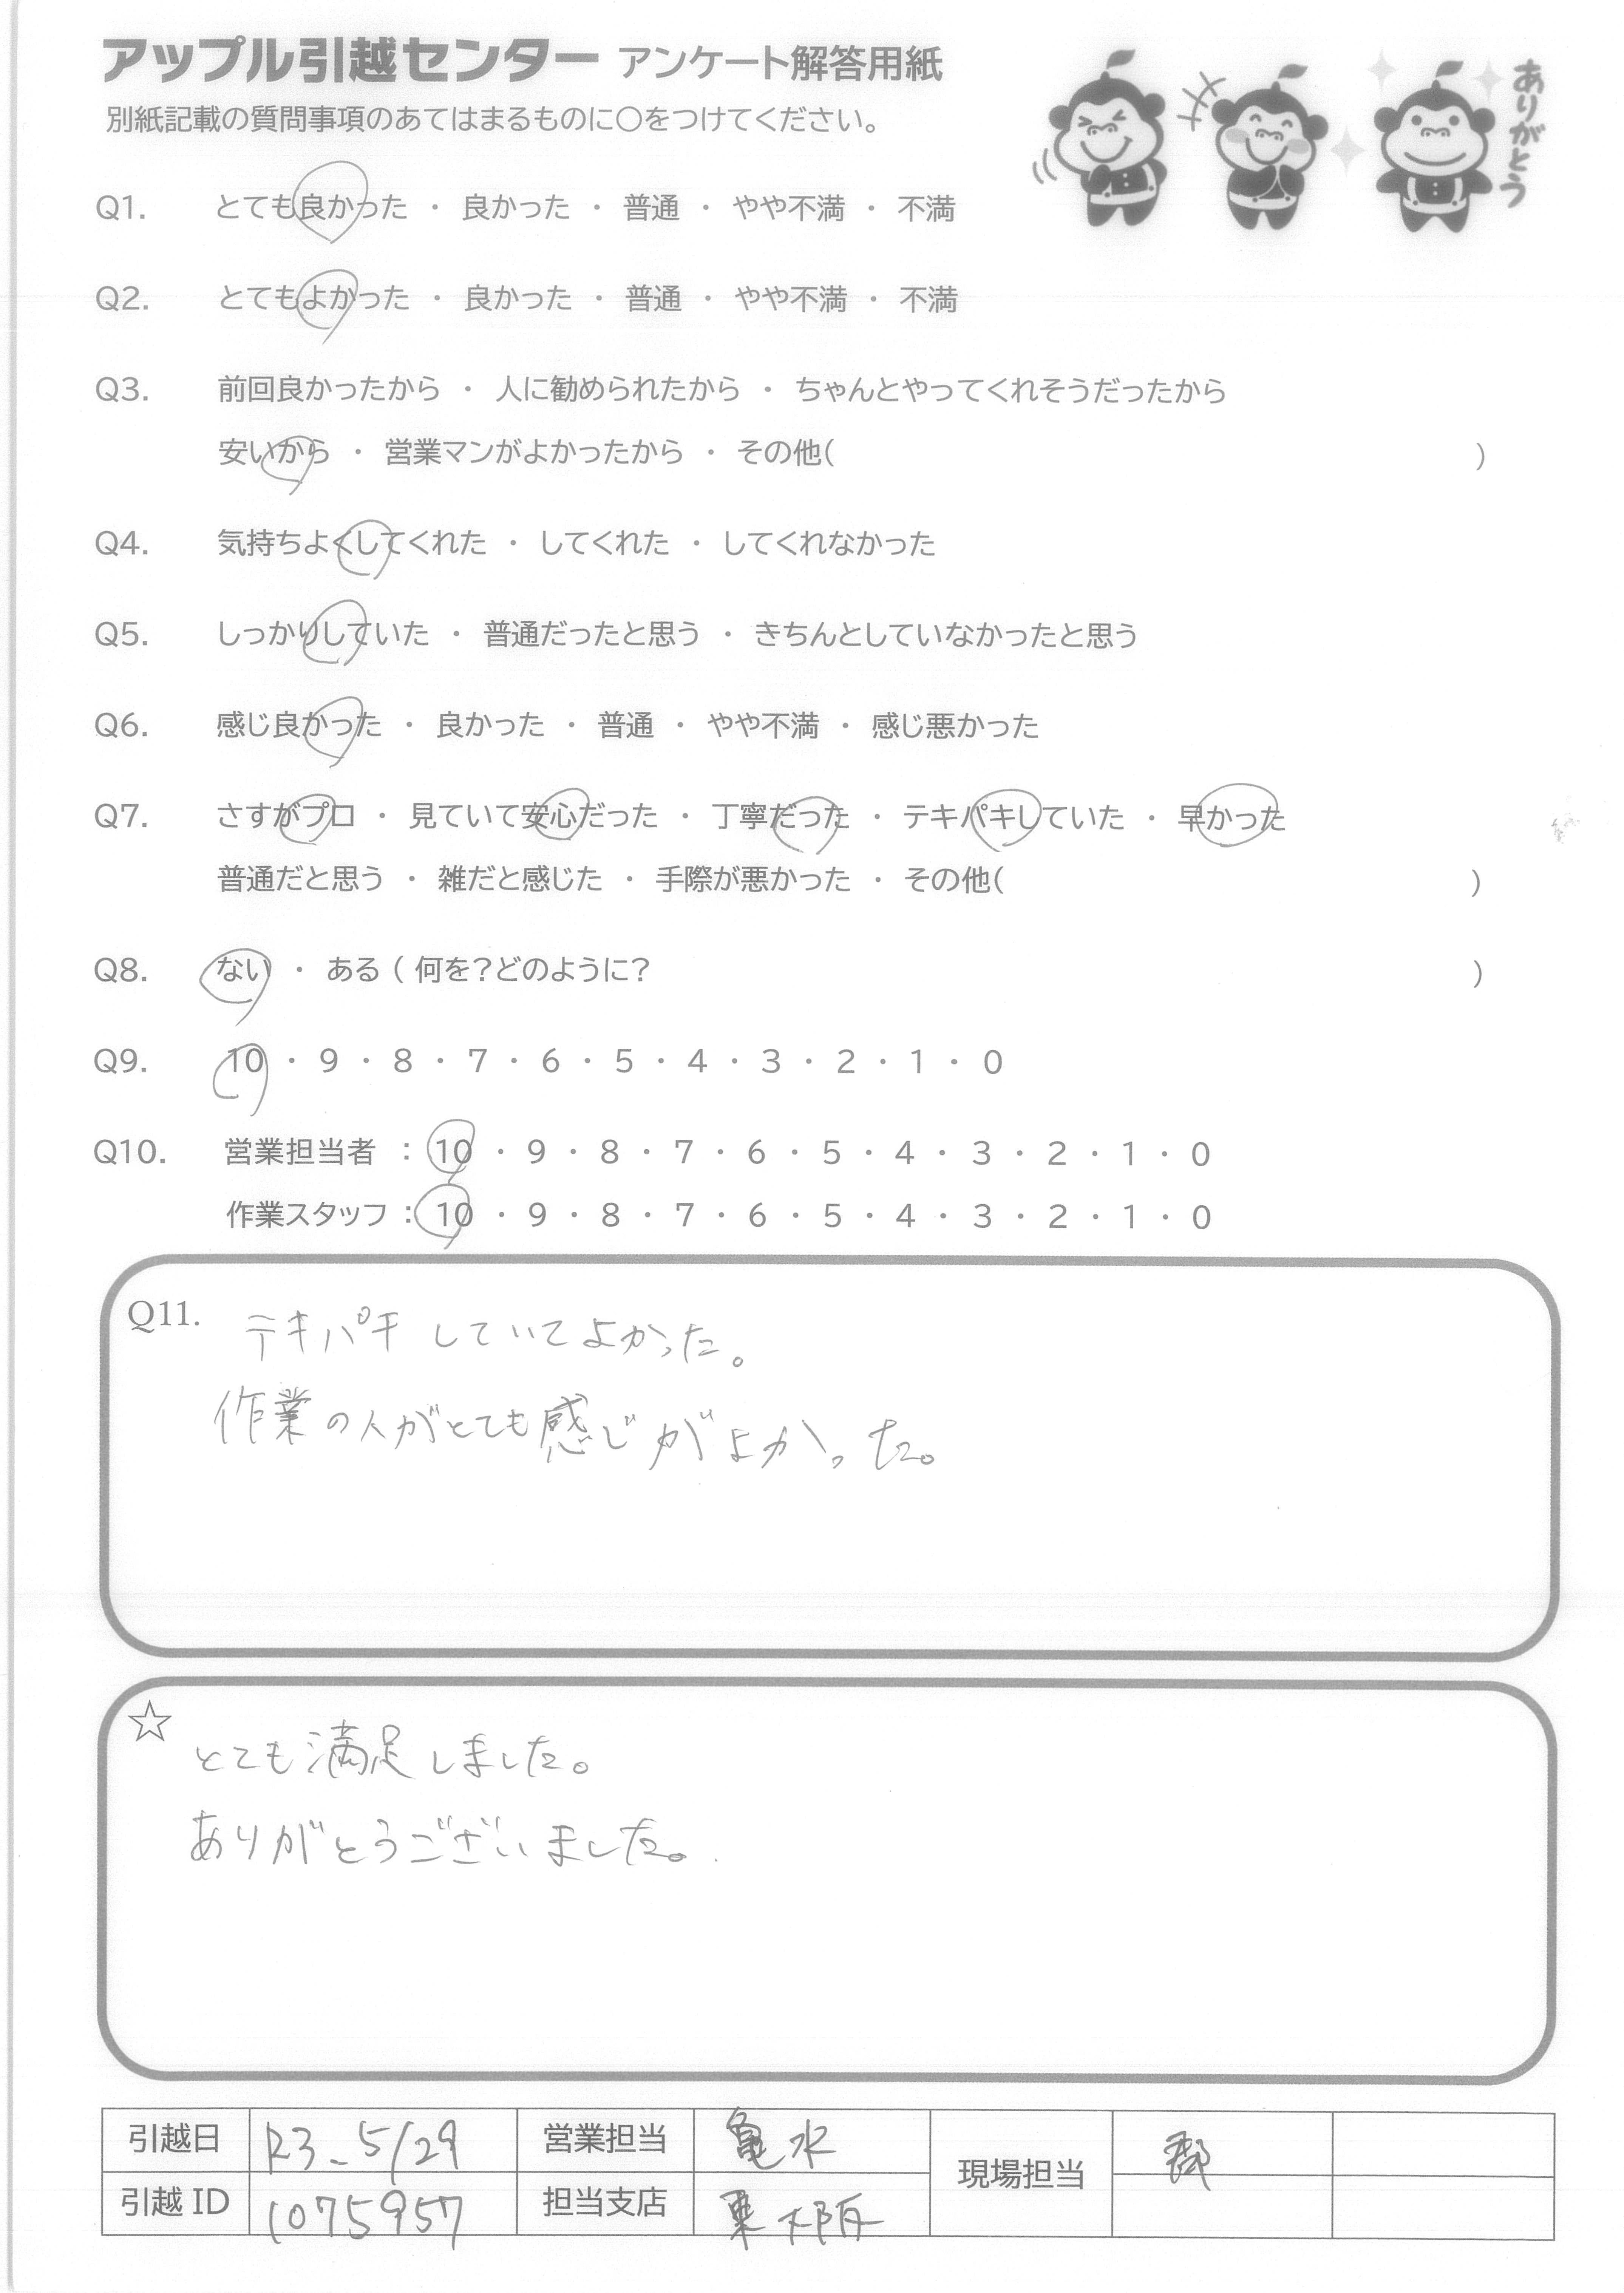 アップル引越センター アンケート解答用紙
別紙記載の質問事項のあてはまるものに〇をつけてください。
ありがとう
Q1. とても良かった ・ 良かった ・ 普通 ・ やや不満 ・ 不満
Q2. とてもよかった ・ 良かった ・ 普通 ・ やや不満 ・ 不満
Q3. 前回良かったから ・ 人に勧められたから ・ ちゃんとやってくれそうだったから
安いから ・ 営業マンがよかったから ・ その他( )
Q4. 気持ちよくしてくれた ・ してくれた ・ してくれなかった
Q5. しっかりしていた ・ 普通だったと思う ・ きちんとしていなかったと思う
Q6. 感じ良かった ・ 良かった ・ 普通 ・ やや不満 ・ 感じ悪かった
Q7. さすがプロ ・ 見ていて安心だった ・ 丁寧だった ・ テキパキしていた ・ 早かった
普通だと思う ・ 雑だと感じた ・ 手際が悪かった ・ その他( )
Q8. ない ・ ある ( 何を?どのように? )
Q9. 10 ・ 9 ・ 8 ・ 7 ・ 6 ・ 5 ・ 4 ・ 3 ・ 2 ・ 1 ・ 0
Q10. 営業担当者 : 10 ・ 9 ・ 8 ・ 7 ・ 6 ・ 5 ・ 4 ・ 3 ・ 2 ・ 1 ・ 0
作業スタッフ : 10 ・ 9 ・ 8 ・ 7 ・ 6 ・ 5 ・ 4 ・ 3 ・ 2 ・ 1 ・ 0
Q11. テキパキしていてよかった。
作業の人がとても感じがよかった。
☆ とても満足しました。
ありがとうございました。
引越日 R3.5/29 営業担当 亀水 現場担当 郡
引越ID 1075957 担当支店 東大阪